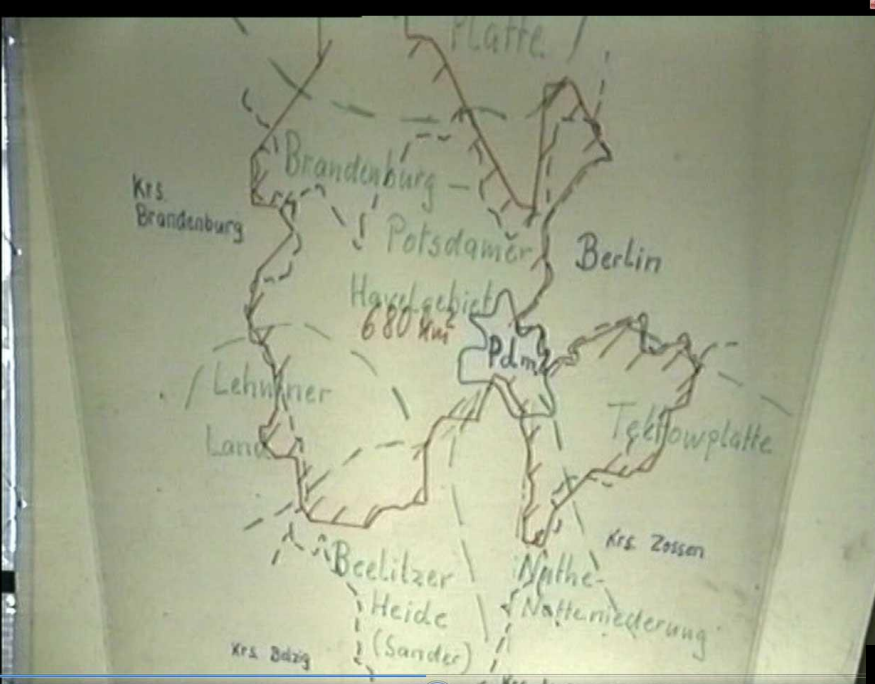 Platte
Brandenburg –
Krs.
Brandenburg
Potsdamer
Berlin
Havelgebiet
680 km²
Pdm
Lehniner
Land
Teltowplatte
Krs. Zossen
Beelitzer
Heide
(Sander)
Nuthe-
Notteniederung
Krs. Belzig
Krs.